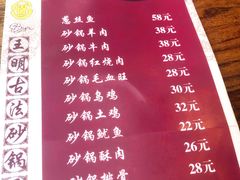 王明古法砂锅
葱丝鱼 58元
砂锅羊肉 38元
砂锅牛肉 38元
砂锅红烧肉 28元
砂锅毛血旺 28元
砂锅乌鸡 30元
砂锅土鸡 32元
砂锅鱿鱼 22元
砂锅酥肉 26元
砂锅排骨 28元